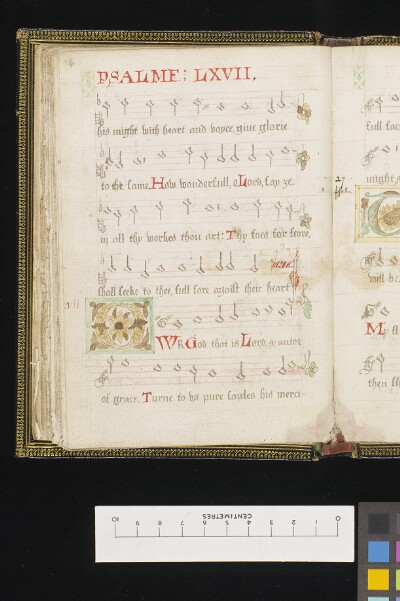 PSALME: LXVII.
his might with heart and voyce, giue glorie
to the same, How wonderfull, o Lord, say ye,
in all thy workes thou art: Thy foes for feare,
shall seeke to thee, full sore agaīst their heart
vii
WR God that is Lord, ye autor
of grace, Turne to vs pure soules his merci-
27
full fac
Me
then sh
will be
CENTIMETRES
10 9 8 7 6 5 4 3 2 1 0